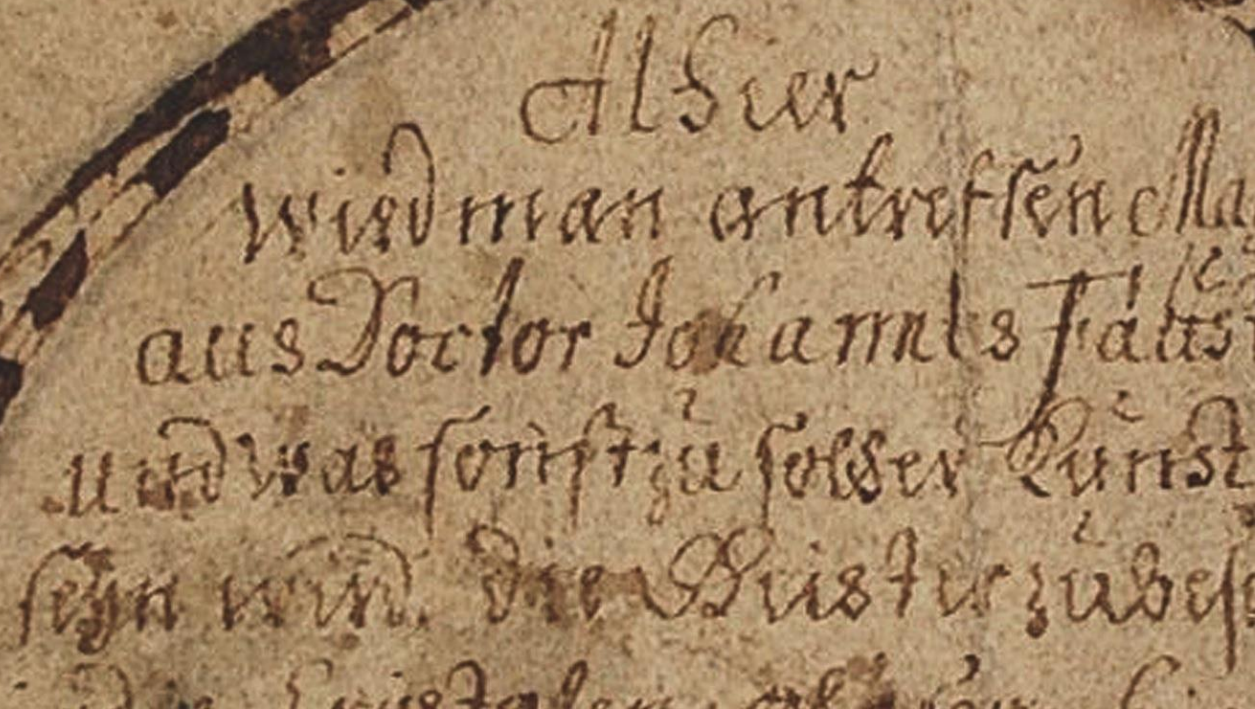 Alhier
wird man antreffen Ma
aus Doctor Johannes Faust
und was sonst zu solcher Kunst
seyn wird. die Geister zu besc
die Cristalen